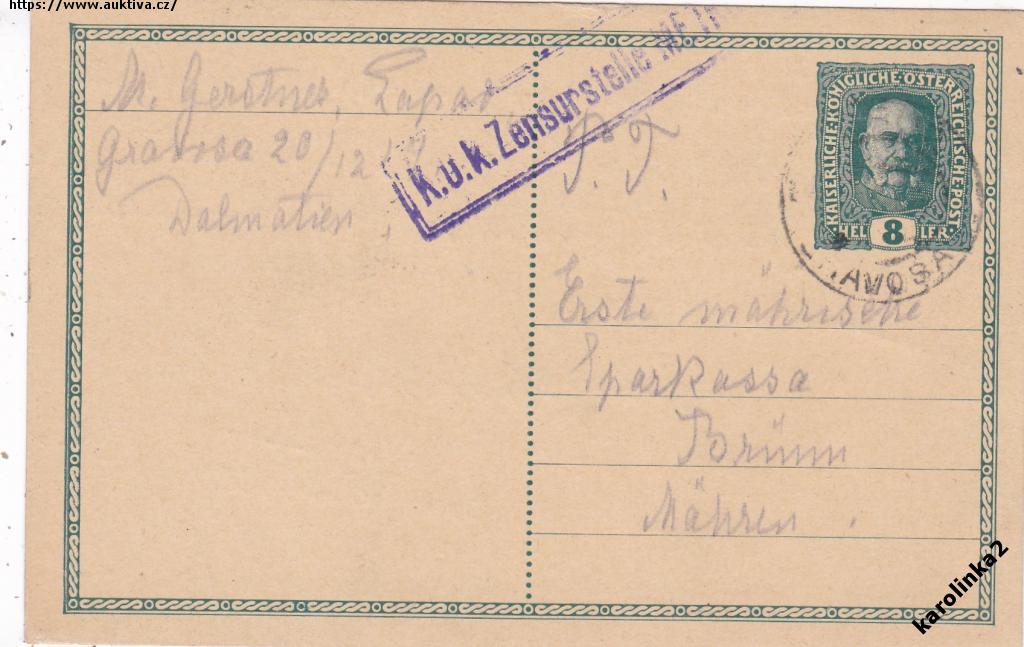 https://www.auktiva.cz/
M. Gerstner, Lapad
Gravosa 20/12 17
Dalmatien.
K.u.K. Zensurstelle
P. T.
KAISERLICHE·KÖNIGLICHE·ÖSTERREICHISCHE·POST
HELLER
8
GRAVOSA
Erste mährische
Sparkassa
Brünn
Mähren.
karolinka2